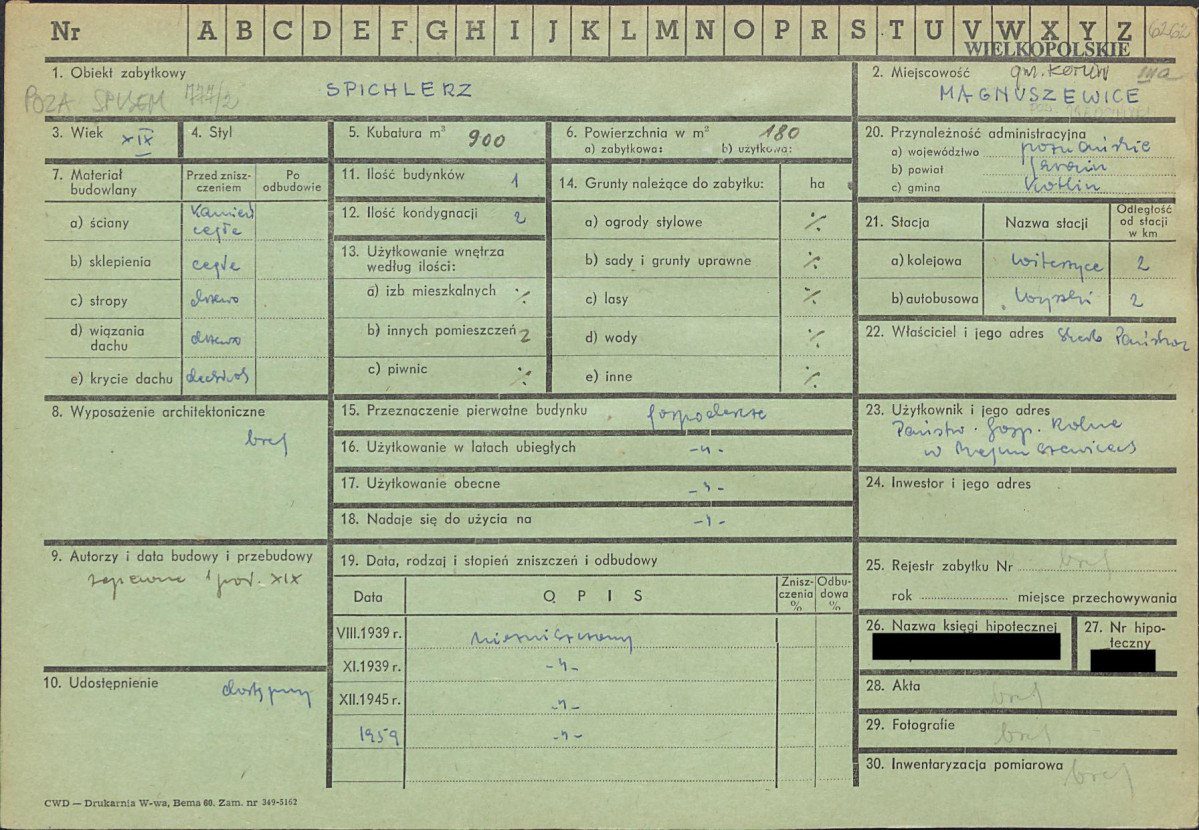 Nr A B C D E F G H I J K L M N O P R S T U V W X Y Z 6262
WIELKOPOLSKIE
1. Obiekt zabytkowy
POZA SPISEM 777/2
SPICHLERZ
2. Miejscowość gm. Kotlin IIIa
MAGNUSZEWICE
3. Wiek XIX
4. Styl
5. Kubatura m³ 900
6. Powierzchnia w m² 180
a) zabytkowa: b) użytkowa:
7. Materiał budowlany
Przed zniszczeniem
Po odbudowie
a) ściany Kamień cegła
b) sklepienia cegła
c) stropy drzewo
d) wiązania dachu drzewo
e) krycie dachu dachówka
8. Wyposażenie architektoniczne
brak
9. Autorzy i data budowy i przebudowy
zapewne 1 poł. XIX
10. Udostępnienie dostępny
11. Ilość budynków 1
12. Ilość kondygnacji 2
13. Użytkowanie wnętrza według ilości:
a) izb mieszkalnych ./.
b) innych pomieszczeń 2
c) piwnic ./.
14. Grunty należące do zabytku: ha
a) ogrody stylowe ./.
b) sady i grunty uprawne ./.
c) lasy ./.
d) wody ./.
e) inne ./.
15. Przeznaczenie pierwotne budynku gospodarcze
16. Użytkowanie w latach ubiegłych -"-
17. Użytkowanie obecne -"-
18. Nadaje się do użycia na -"-
19. Data, rodzaj i stopień zniszczeń i odbudowy
Data OPIS Zniszczenia % Odbudowa %
VIII.1939 r. niezniszczony
XI.1939 r. -"-
XII.1945 r. -"-
1959 -"-
20. Przynależność administracyjna
a) województwo poznańskie
b) powiat Jarocin
c) gmina Kotlin
21. Stacja Nazwa stacji Odległość od stacji w km
a) kolejowa Witaszyce 2
b) autobusowa 2
22. Właściciel i jego adres Skarb Państwa
23. Użytkownik i jego adres
Państw. Gosp. Rolne
w Magnuszewicach
24. Inwestor i jego adres
25. Rejestr zabytku Nr brak
rok miejsce przechowywania
26. Nazwa księgi hipotecznej
27. Nr hipoteczny
28. Akta brak
29. Fotografie brak
30. Inwentaryzacja pomiarowa brak
CWD — Drukarnia W-wa, Bema 60. Zam. nr 349-5162